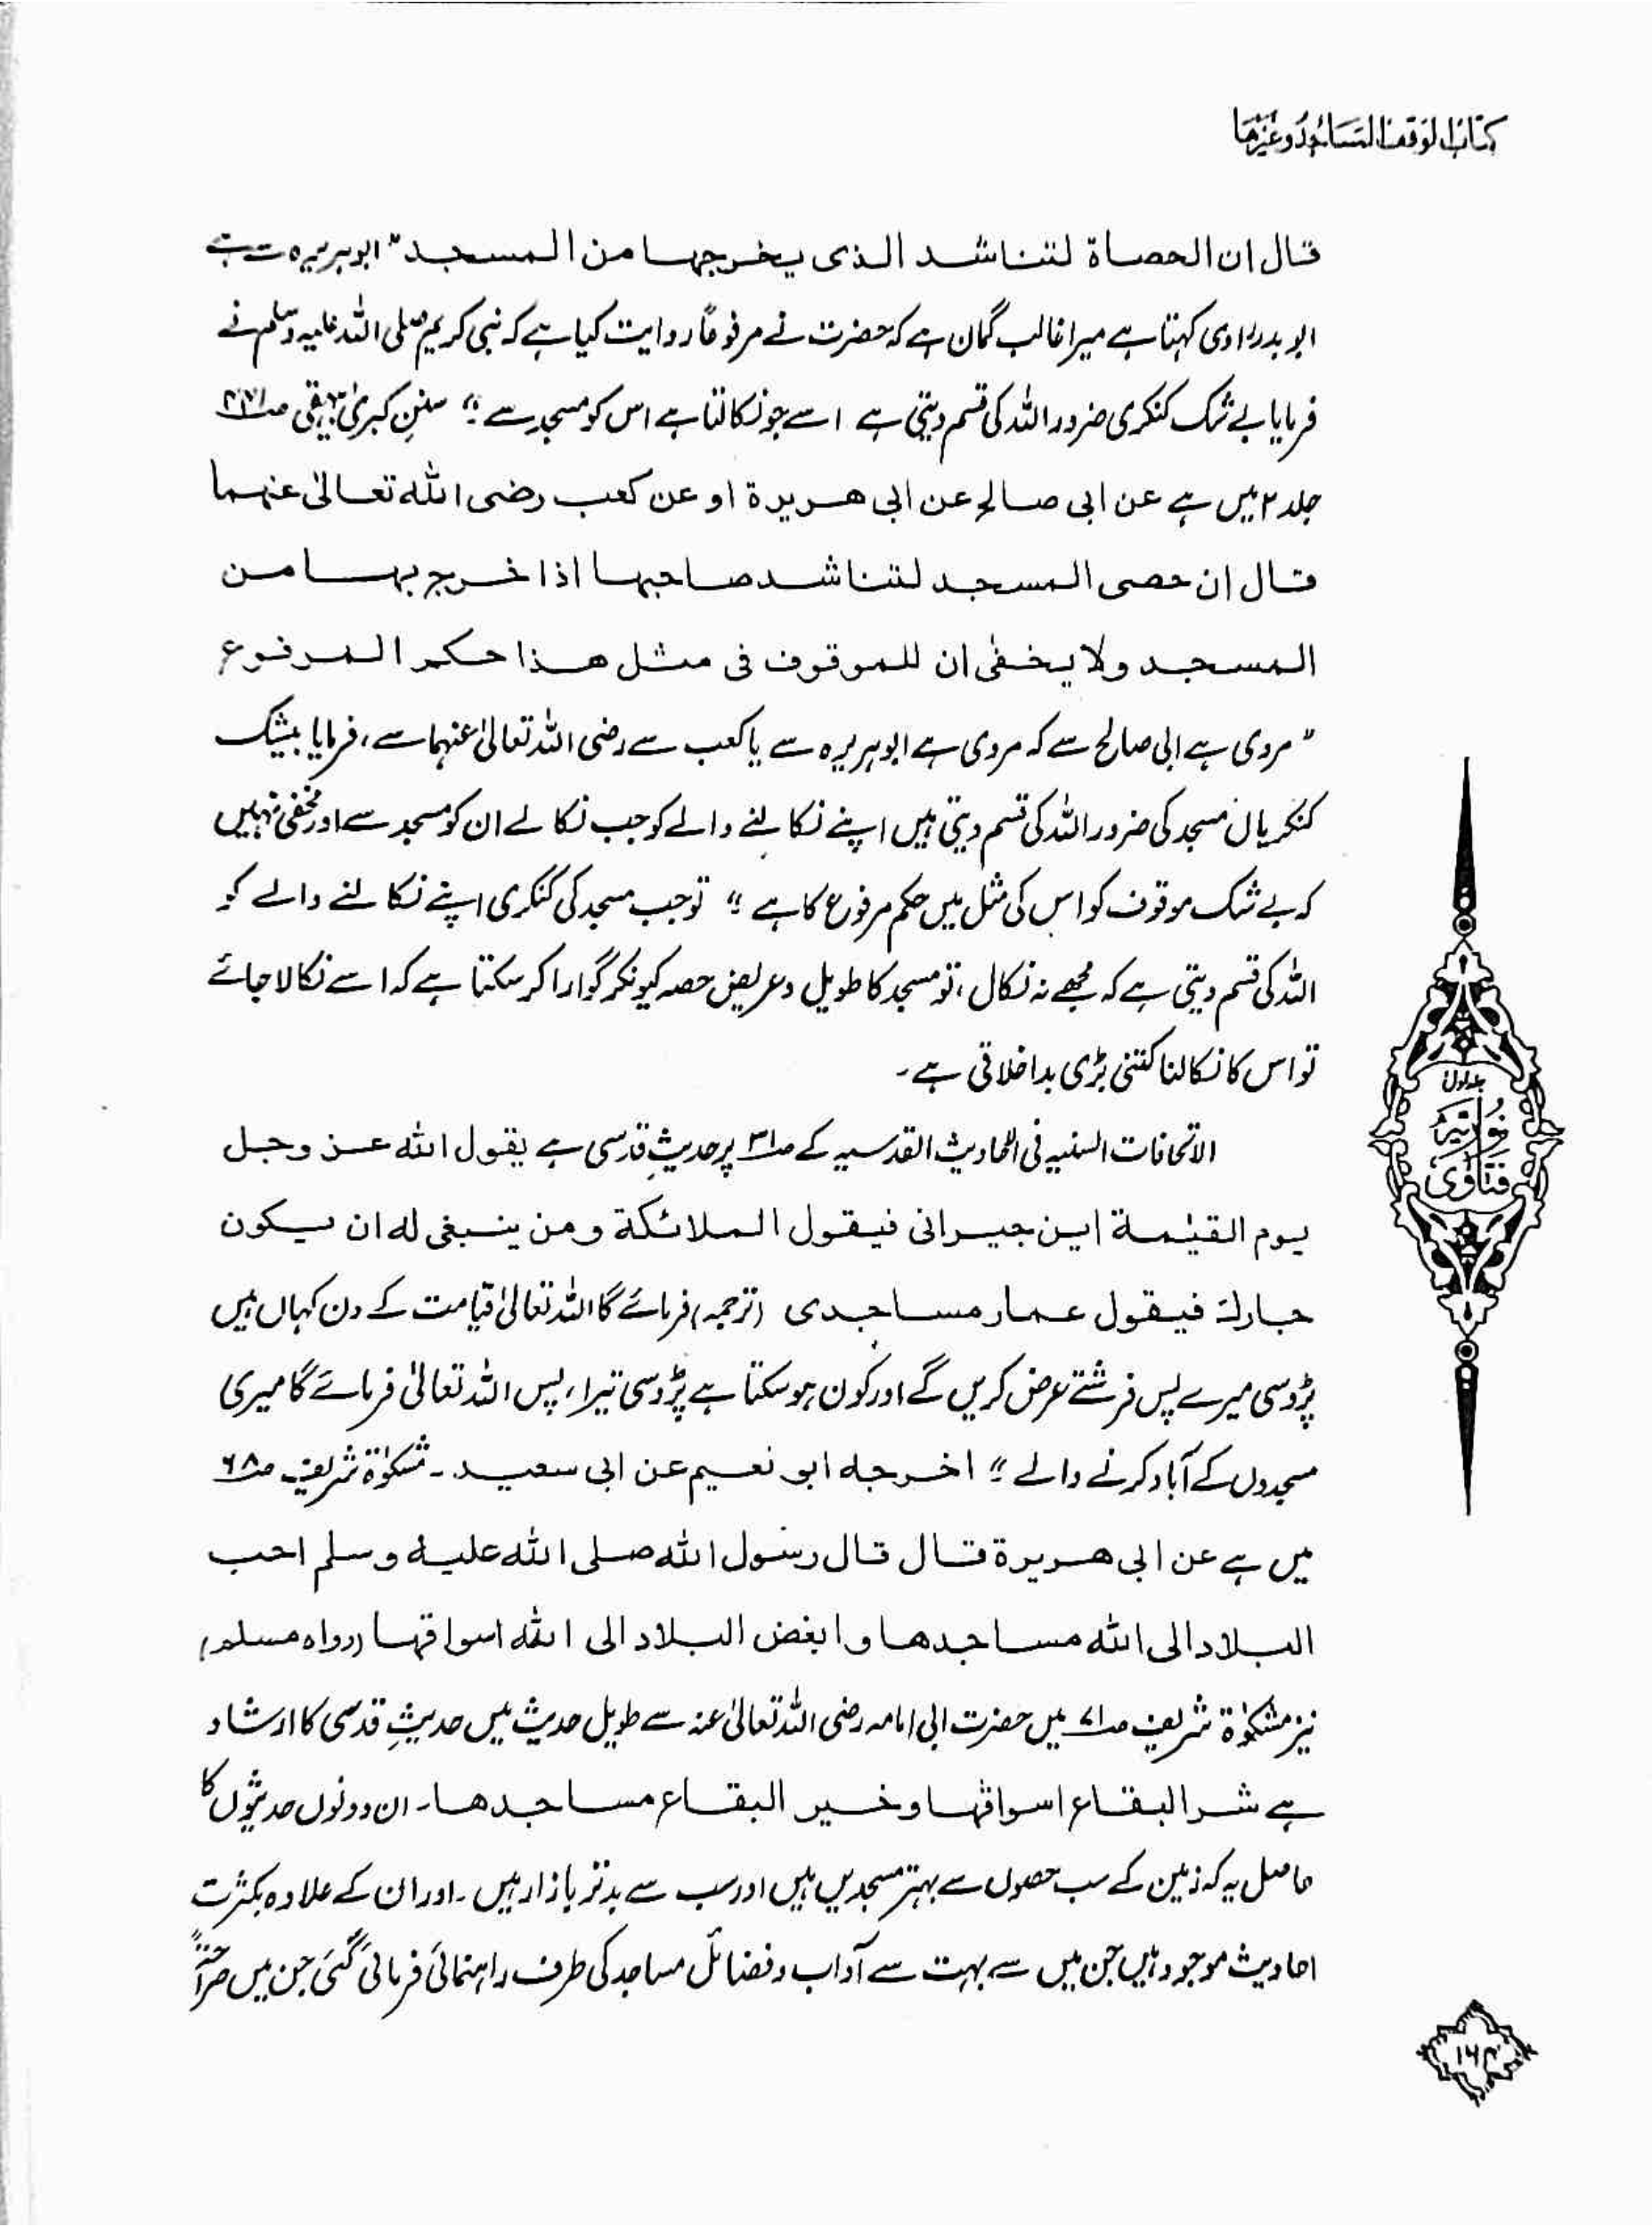 کتاب الوقف المساجد وغیرھا
قال ان الحصاة لتناشد الذی یخرجہا من المسجد" ابوہریرہ سے ہے
ابو بدر راوی کہتا ہے میرا غالب گمان ہے کہ حضرت نے مرفوعاً روایت کیا ہے کہ نبی کریم صلی اللہ علیہ وسلم نے
فرمایا بے شک کنکری ضرور اللہ کی قسم دیتی ہے اسے جو نکالتا ہے اس کو مسجد سے" سنن کبریٰ بیہقی صـ
جلد ۲ میں ہے عن ابی صالح عن ابی ھریرة او عن کعب رضی اللہ تعالیٰ عنہما
قال ان حصی المسجد لتناشد صاحبہا اذا خرج بہا من
المسجد ولا یخفیٰ ان للموقوف فی مثل ھذا حکم المرفوع
"مروی ہے ابی صالح سے کہ مروی ہے ابوہریرہ سے یا کعب سے رضی اللہ تعالیٰ عنہما سے، فرمایا بیشک
کنکریاں مسجد کی ضرور اللہ کی قسم دیتی ہیں اپنے نکالنے والے کو جب نکالے ان کو مسجد سے اور مخفی نہیں
کہ بے شک موقوف کو اس کی مثل میں حکم مرفوع کا ہے" تو جب مسجد کی کنکری اپنے نکالنے والے کو
اللہ کی قسم دیتی ہے کہ مجھے نہ نکال، تو مسجد کا طویل وعریض حصہ کیونکر گوارا کر سکتا ہے کہ اسے نکالا جائے
تو اس کا نکالنا کتنی بڑی بداخلاقی ہے۔
الاتحافات السنیہ فی الاحادیث القدسیہ کے صـ۳۱ پر حدیثِ قدسی ہے یقول اللہ عزوجل
یوم القیٰمة این جیرانی فیقول الملائکة ومن ینبغی لہ ان یکون
جارك فیقول عمار مساجدی (ترجمہ) فرمائے گا اللہ تعالیٰ قیامت کے دن کہاں ہیں
پڑوسی میرے پس فرشتے عرض کریں گے اور کون ہو سکتا ہے پڑوسی تیرا، پس اللہ تعالیٰ فرمائے گا میری
مسجدوں کے آباد کرنے والے" اخرجہ ابو نعیم عن ابی سعید۔ مشکوٰة شریف صـ۶۸
میں ہے عن ابی ھریرة قال قال رسول اللہ صلی اللہ علیہ وسلم احب
البلاد الی اللہ مساجدھا وابغض البلاد الی اللہ اسواقہا (رواہ مسلم)
نیز مشکوٰة شریف صـ۷۱ میں حضرت ابی امامہ رضی اللہ تعالیٰ عنہ سے طویل حدیث میں حدیثِ قدسی کا ارشاد
ہے شر البقاع اسواقہا وخیر البقاع مساجدھا۔ ان دونوں حدیثوں کا
حاصل یہ کہ زمین کے سب حصوں سے بہتر مسجدیں ہیں اور سب سے بدتر بازار ہیں۔ اور ان کے علاوہ بکثرت
احادیث موجود ہیں جن میں سے بہت سے آداب وفضائل مساجد کی طرف راہنمائی فرمائی گئی جن میں صراحۃً
جلد اول
نوریہ
فتاوی
۱۶۴